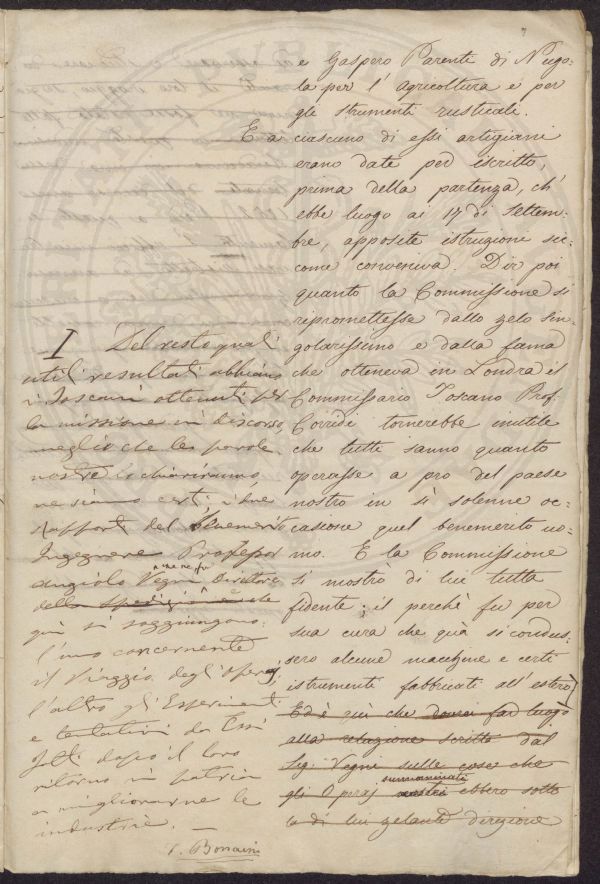 7
e Gaspero Parenti di Nugo-
la per l' agricoltura e per
gli strumenti rusticali.
E a ciascuno di essi artigiani
erano date per iscritto,
prima della partenza, ch'
ebbe luogo ai 17 di Settem-
bre, apposite istruzioni sic-
come conveniva. Dir poi
quanto la Commissione si
ripromettesse dallo zelo sin-
golarissimo e dalla fama
che otteneva in Londra il
Commissario Toscano Prof.
Corridi tornerebbe inutile
che tutti sanno quanto
operasse a pro del paese
nostro in sì solenne oc-
casione quel benemerito uo-
mo. E la Commissione
si mostrò di lui tutta
fidente; il perchè fu per
sua cura che quà si condus-
sero alcune macchine e certi
istrumenti fabbricati all' estero
Ed è quì che dovrei far luogo
alla relazione scritta dal
Sig. Vegni sulle cose che
gli Operaj ebbero sotto
la di lui zelante direzione
I Del resto quali
utili resultati abbiano
i Toscani ottenuti per
la missione in discorso,
meglio che le parole
nostre lo chiariranno,
ne siamo certi, i due
rapporti del benemerito
Ingegnere Professor
Angiolo Vegni Direttore
della spedizione che
quì si soggiungono:
l'uno concernente
il Viaggio degli Operaj,
l'altro gli Esperimenti
e tentativi da Essi
fatti dopo il loro
ritorno in patria
a migliorarne le
industrie.
F. Bonaini